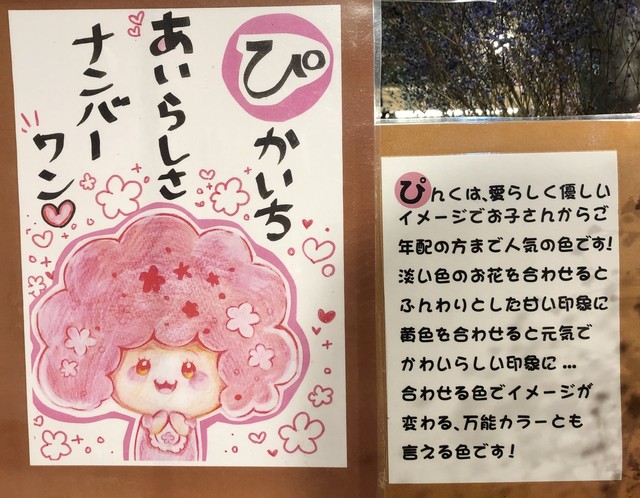 ぴかいち
あいらしさ
ナンバー
ワン
ぴんくは、愛らしく優しい
イメージでお子さんからご
年配の方まで人気の色です!
淡い色のお花を合わせると
ふんわりとした甘い印象に
黄色を合わせると元気で
かわいらしい印象に…
合わせる色でイメージが
変わる、万能カラーとも
言える色です!